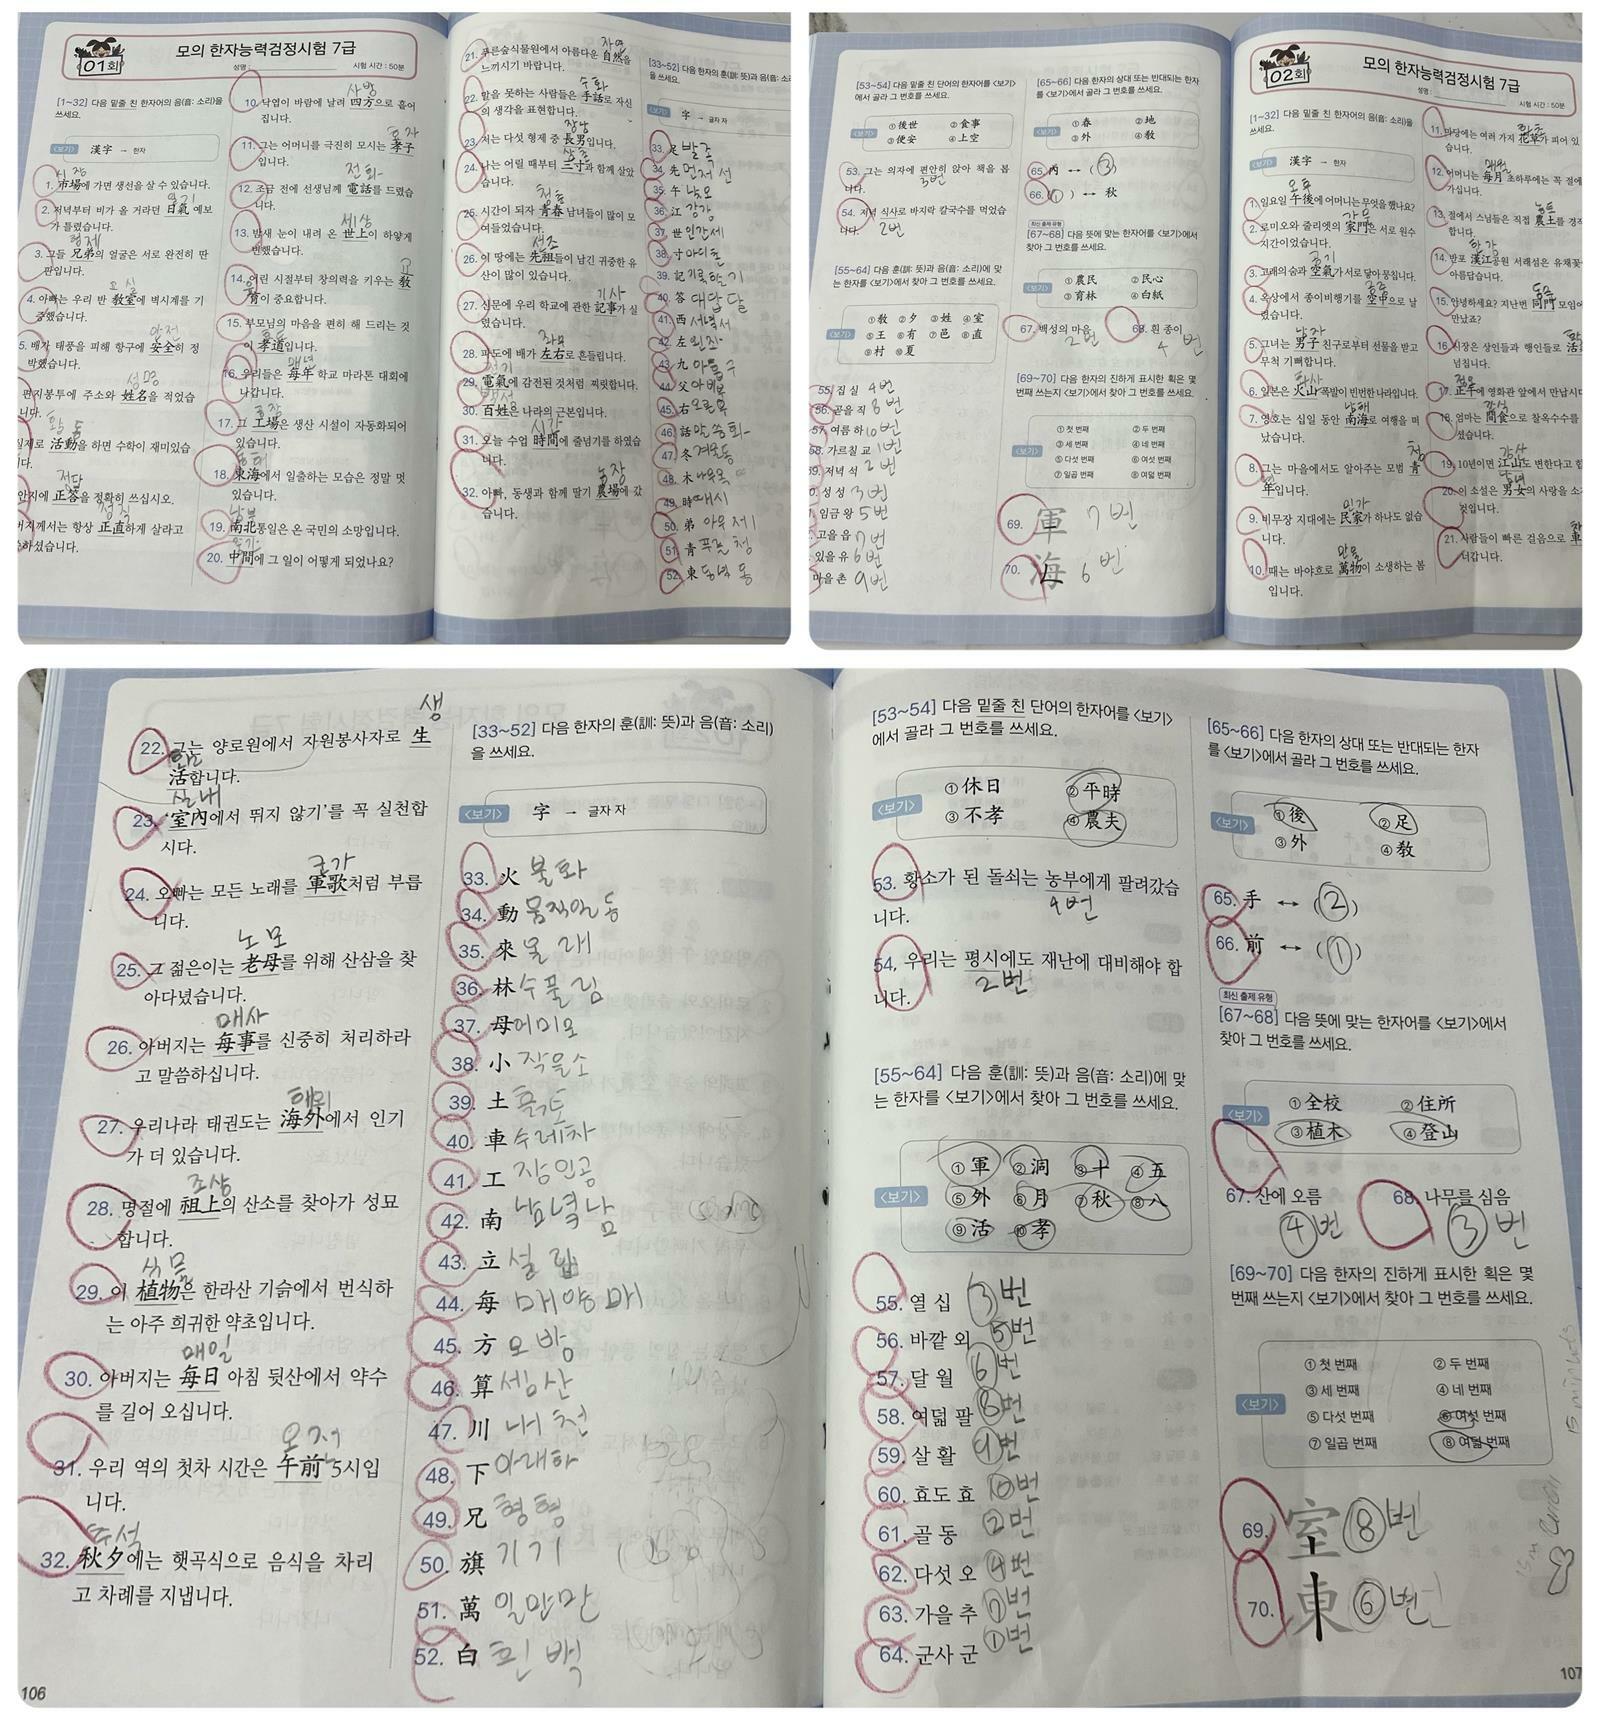 01회
모의 한자능력검정시험 7급
성명 :
시험 시간 : 50분
[1~32] 다음 밑줄 친 한자어의 음(音: 소리)을
쓰세요.
<보기> 漢字 → 한자
시장
1. 市場에 가면 생선을 살 수 있습니다.
일기
2. 저녁부터 비가 올 거라던 日氣 예보
가 틀렸습니다.
형제
3. 그들 兄弟의 얼굴은 서로 완전히 딴
판입니다.
교실
4. 아빠는 우리 반 敎室에 벽시계를 기
증했습니다.
안전
5. 배가 태풍을 피해 항구에 安全히 정
박했습니다.
성명
편지봉투에 주소와 姓名을 적었습
니다.
활동
실제로 活動을 하면 수학이 재미있습
정답
안지에 正答을 정확히 쓰십시오.
정직
버지께서는 항상 正直하게 살라고
하셨습니다.
사방
10. 낙엽이 바람에 날려 四方으로 흩어
집니다.
효자
11. 그는 어머니를 극진히 모시는 孝子
입니다.
전화
12. 조금 전에 선생님께 電話를 드렸습
니다.
세상
13. 밤새 눈이 내려 온 世上이 하얗게
변했습니다.
교
14. 어린 시절부터 창의력을 키우는 敎
育이 중요합니다.
15. 부모님의 마음을 편히 해 드리는 것
이 孝道입니다.
매년
16. 우리들은 每年 학교 마라톤 대회에
나갑니다.
공장
17. 그 工場은 생산 시설이 자동화되어
있습니다.
동해
18. 東海에서 일출하는 모습은 정말 멋
있습니다.
남북
19. 南北통일은 온 국민의 소망입니다.
중간
20. 中間에 그 일이 어떻게 되었나요?
자연
21. 푸른숲식물원에서 아름다운 自然을
느끼시기 바랍니다.
수화
22. 말을 못하는 사람들은 手話로 자신
의 생각을 표현합니다.
장남
23. 저는 다섯 형제 중 長男입니다.
삼촌
24. 나는 어릴 때부터 三寸과 함께 살았
습니다.
청춘
25. 시간이 되자 靑春 남녀들이 많이 모
여들었습니다.
선조
26. 이 땅에는 先祖들이 남긴 귀중한 유
산이 많이 있습니다.
기사
27. 신문에 우리 학교에 관한 記事가 실
렸습니다.
좌우
28. 파도에 배가 左右로 흔들립니다.
전기
29. 電氣에 감전된 것처럼 찌릿합니다.
백성
30. 百姓은 나라의 근본입니다.
시간
31. 오늘 수업 時間에 줄넘기를 하였습
니다.
농장
32. 아빠, 동생과 함께 딸기 農場에 갔
습니다.
[33~52] 다음 한자의 훈(訓: 뜻)과 음(音: 소리)
을 쓰세요.
<보기> 字 → 글자 자
33. 足 발 족
34. 先 먼저 선
35. 午 낮 오
36. 江 강 강
37. 世 인간 세
38. 寸 마디 촌
39. 記 기록할 기
40. 答 대답 답
41. 西 서녘 서
42. 左 왼 좌
43. 九 아홉 구
44. 父 아비 부
45. 右 오른 우
46. 話 말씀 화
47. 冬 겨울 동
48. 木 나무 목
49. 時 때 시
50. 弟 아우 제
51. 靑 푸를 청
52. 東 동녘 동
[53~54] 다음 밑줄 친 단어의 한자어를 <보기>
에서 골라 그 번호를 쓰세요.
<보기> ①後世 ②食事
③便安 ④上空
53. 그는 의자에 편안히 앉아 책을 봅
니다. 3번
54. 저녁 식사로 바지락 칼국수를 먹었습
니다. 2번
[55~64] 다음 훈(訓: 뜻)과 음(音: 소리)에 맞
는 한자를 <보기>에서 찾아 그 번호를 쓰세요.
<보기> ①敎 ②夕 ③姓 ④室
⑤王 ⑥有 ⑦邑 ⑧直
⑨村 ⑩夏
55. 집 실 4번
56. 곧을 직 8번
57. 여름 하 10번
58. 가르칠 교 1번
59. 저녁 석 2번
성 성 3번
임금 왕 5번
고을 읍 7번
있을 유 6번
마을 촌 9번
[65~66] 다음 한자의 상대 또는 반대되는 한자
를 <보기>에서 골라 그 번호를 쓰세요.
<보기> ①春 ②地
③外 ④敎
65. 內 ↔ (③)
66. (①) ↔ 秋
최신 출제 유형
[67~68] 다음 뜻에 맞는 한자어를 <보기>에서
찾아 그 번호를 쓰세요.
<보기> ①農民 ②民心
③育林 ④白紙
67. 백성의 마음 68. 흰 종이
2번 4번
[69~70] 다음 한자의 진하게 표시한 획은 몇
번째 쓰는지 <보기>에서 찾아 그 번호를 쓰세요.
<보기> ①첫 번째 ②두 번째
③세 번째 ④네 번째
⑤다섯 번째 ⑥여섯 번째
⑦일곱 번째 ⑧여덟 번째
69. 軍 7번
70. 海 6번
02회
모의 한자능력검정시험 7급
성명 :
시험 시간 : 50분
[1~32] 다음 밑줄 친 한자어의 음(音: 소리)을
쓰세요.
<보기> 漢字 → 한자
오후
1. 일요일 午後에 어머니는 무엇을 했나요?
가문
2. 로미오와 줄리엣의 家門은 서로 원수
지간이었습니다.
공기
3. 고래의 숨과 空氣가 서로 닿아 뭉칩니다.
공중
4. 옥상에서 종이비행기를 空中으로 날
렸습니다.
남자
5. 그녀는 男子 친구로부터 선물을 받고
무척 기뻐합니다.
화산
6. 일본은 火山 폭발이 빈번한 나라입니다.
남해
7. 영호는 십일 동안 南海로 여행을 떠
났습니다.
청
8. 그는 마음에서도 알아주는 모범 靑
年입니다.
민가
9. 비무장 지대에는 民家가 하나도 없습
니다.
만물
10. 때는 바야흐로 萬物이 소생하는 봄
입니다.
화초
11. 마당에는 여러 가지 花草가 피어 있
습니다.
매월
12. 어머니는 每月 초하루에는 꼭 절에
가십니다.
농토
13. 절에서 스님들은 직접 農土를 경작
합니다.
한강
14. 반포 漢江공원 서래섬은 유채꽃
아름답습니다.
동문
15. 안녕하세요? 지난번 同門 모임에
만났죠?
16. 시장은 상인들과 행인들로 活
넘칩니다.
정오
17. 正午에 영화관 앞에서 만납시다
간식
18. 엄마는 間食으로 찰옥수수를
셨습니다.
강산
19. 10년이면 江山도 변한다고 합
남녀
20. 이 소설은 男女의 사랑을 소
것입니다.
21. 사람들이 빠른 걸음으로 車
너갑니다.
생
22. 그는 양로원에서 자원봉사자로 生
활
活합니다.
실내
23. '室內에서 뛰지 않기'를 꼭 실천합
시다.
군가
24. 오빠는 모든 노래를 軍歌처럼 부릅
니다.
노모
25. 그 젊은이는 老母를 위해 산삼을 찾
아다녔습니다.
매사
26. 아버지는 每事를 신중히 처리하라
고 말씀하십니다.
해외
27. 우리나라 태권도는 海外에서 인기
가 더 있습니다.
조상
28. 명절에 祖上의 산소를 찾아가 성묘
합니다.
식물
29. 이 植物은 한라산 기슭에서 번식하
는 아주 희귀한 약초입니다.
매일
30. 아버지는 每日 아침 뒷산에서 약수
를 길어 오십니다.
오전
31. 우리 역의 첫차 시간은 午前 5시입
니다.
추석
32. 秋夕에는 햇곡식으로 음식을 차리
고 차례를 지냅니다.
106
[33~52] 다음 한자의 훈(訓: 뜻)과 음(音: 소리)
을 쓰세요.
<보기> 字 → 글자 자
33. 火 불 화
34. 動 움직일 동
35. 來 올 래
36. 林 수풀 림
37. 母 어미 모
38. 小 작을 소
39. 土 흙 토
40. 車 수레 차
41. 工 장인 공
42. 南 남녘 남
43. 立 설 립
44. 每 매양 매
45. 方 모 방
46. 算 셈 산
47. 川 내 천
48. 下 아래 하
49. 兄 형 형
50. 旗 기 기
51. 萬 일만 만
52. 白 흰 백
[53~54] 다음 밑줄 친 단어의 한자어를 <보기>
에서 골라 그 번호를 쓰세요.
<보기> ①休日 ②平時
③不孝 ④農夫
53. 황소가 된 돌쇠는 농부에게 팔려갔습
니다. 4번
54. 우리는 평시에도 재난에 대비해야 합
니다. 2번
[55~64] 다음 훈(訓: 뜻)과 음(音: 소리)에 맞
는 한자를 <보기>에서 찾아 그 번호를 쓰세요.
<보기> ①軍 ②洞 ③十 ④五
⑤外 ⑥月 ⑦秋 ⑧八
⑨活 ⑩孝
55. 열 십 ③번
56. 바깥 외 ⑤번
57. 달 월 ⑥번
58. 여덟 팔 ⑧번
59. 살 활 ⑨번
60. 효도 효 ⑩번
61. 골 동 ②번
62. 다섯 오 ④번
63. 가을 추 ⑦번
64. 군사 군 ①번
[65~66] 다음 한자의 상대 또는 반대되는 한자
를 <보기>에서 골라 그 번호를 쓰세요.
<보기> ①後 ②足
③外 ④敎
65. 手 ↔ (②)
66. 前 ↔ (①)
최신 출제 유형
[67~68] 다음 뜻에 맞는 한자어를 <보기>에서
찾아 그 번호를 쓰세요.
<보기> ①全校 ②住所
③植木 ④登山
67. 산에 오름 68. 나무를 심음
④번 ③번
[69~70] 다음 한자의 진하게 표시한 획은 몇
번째 쓰는지 <보기>에서 찾아 그 번호를 쓰세요.
<보기> ①첫 번째 ②두 번째
③세 번째 ④네 번째
⑤다섯 번째 ⑥여섯 번째
⑦일곱 번째 ⑧여덟 번째
69. 室 ⑧번
70. 東 ⑥번
107